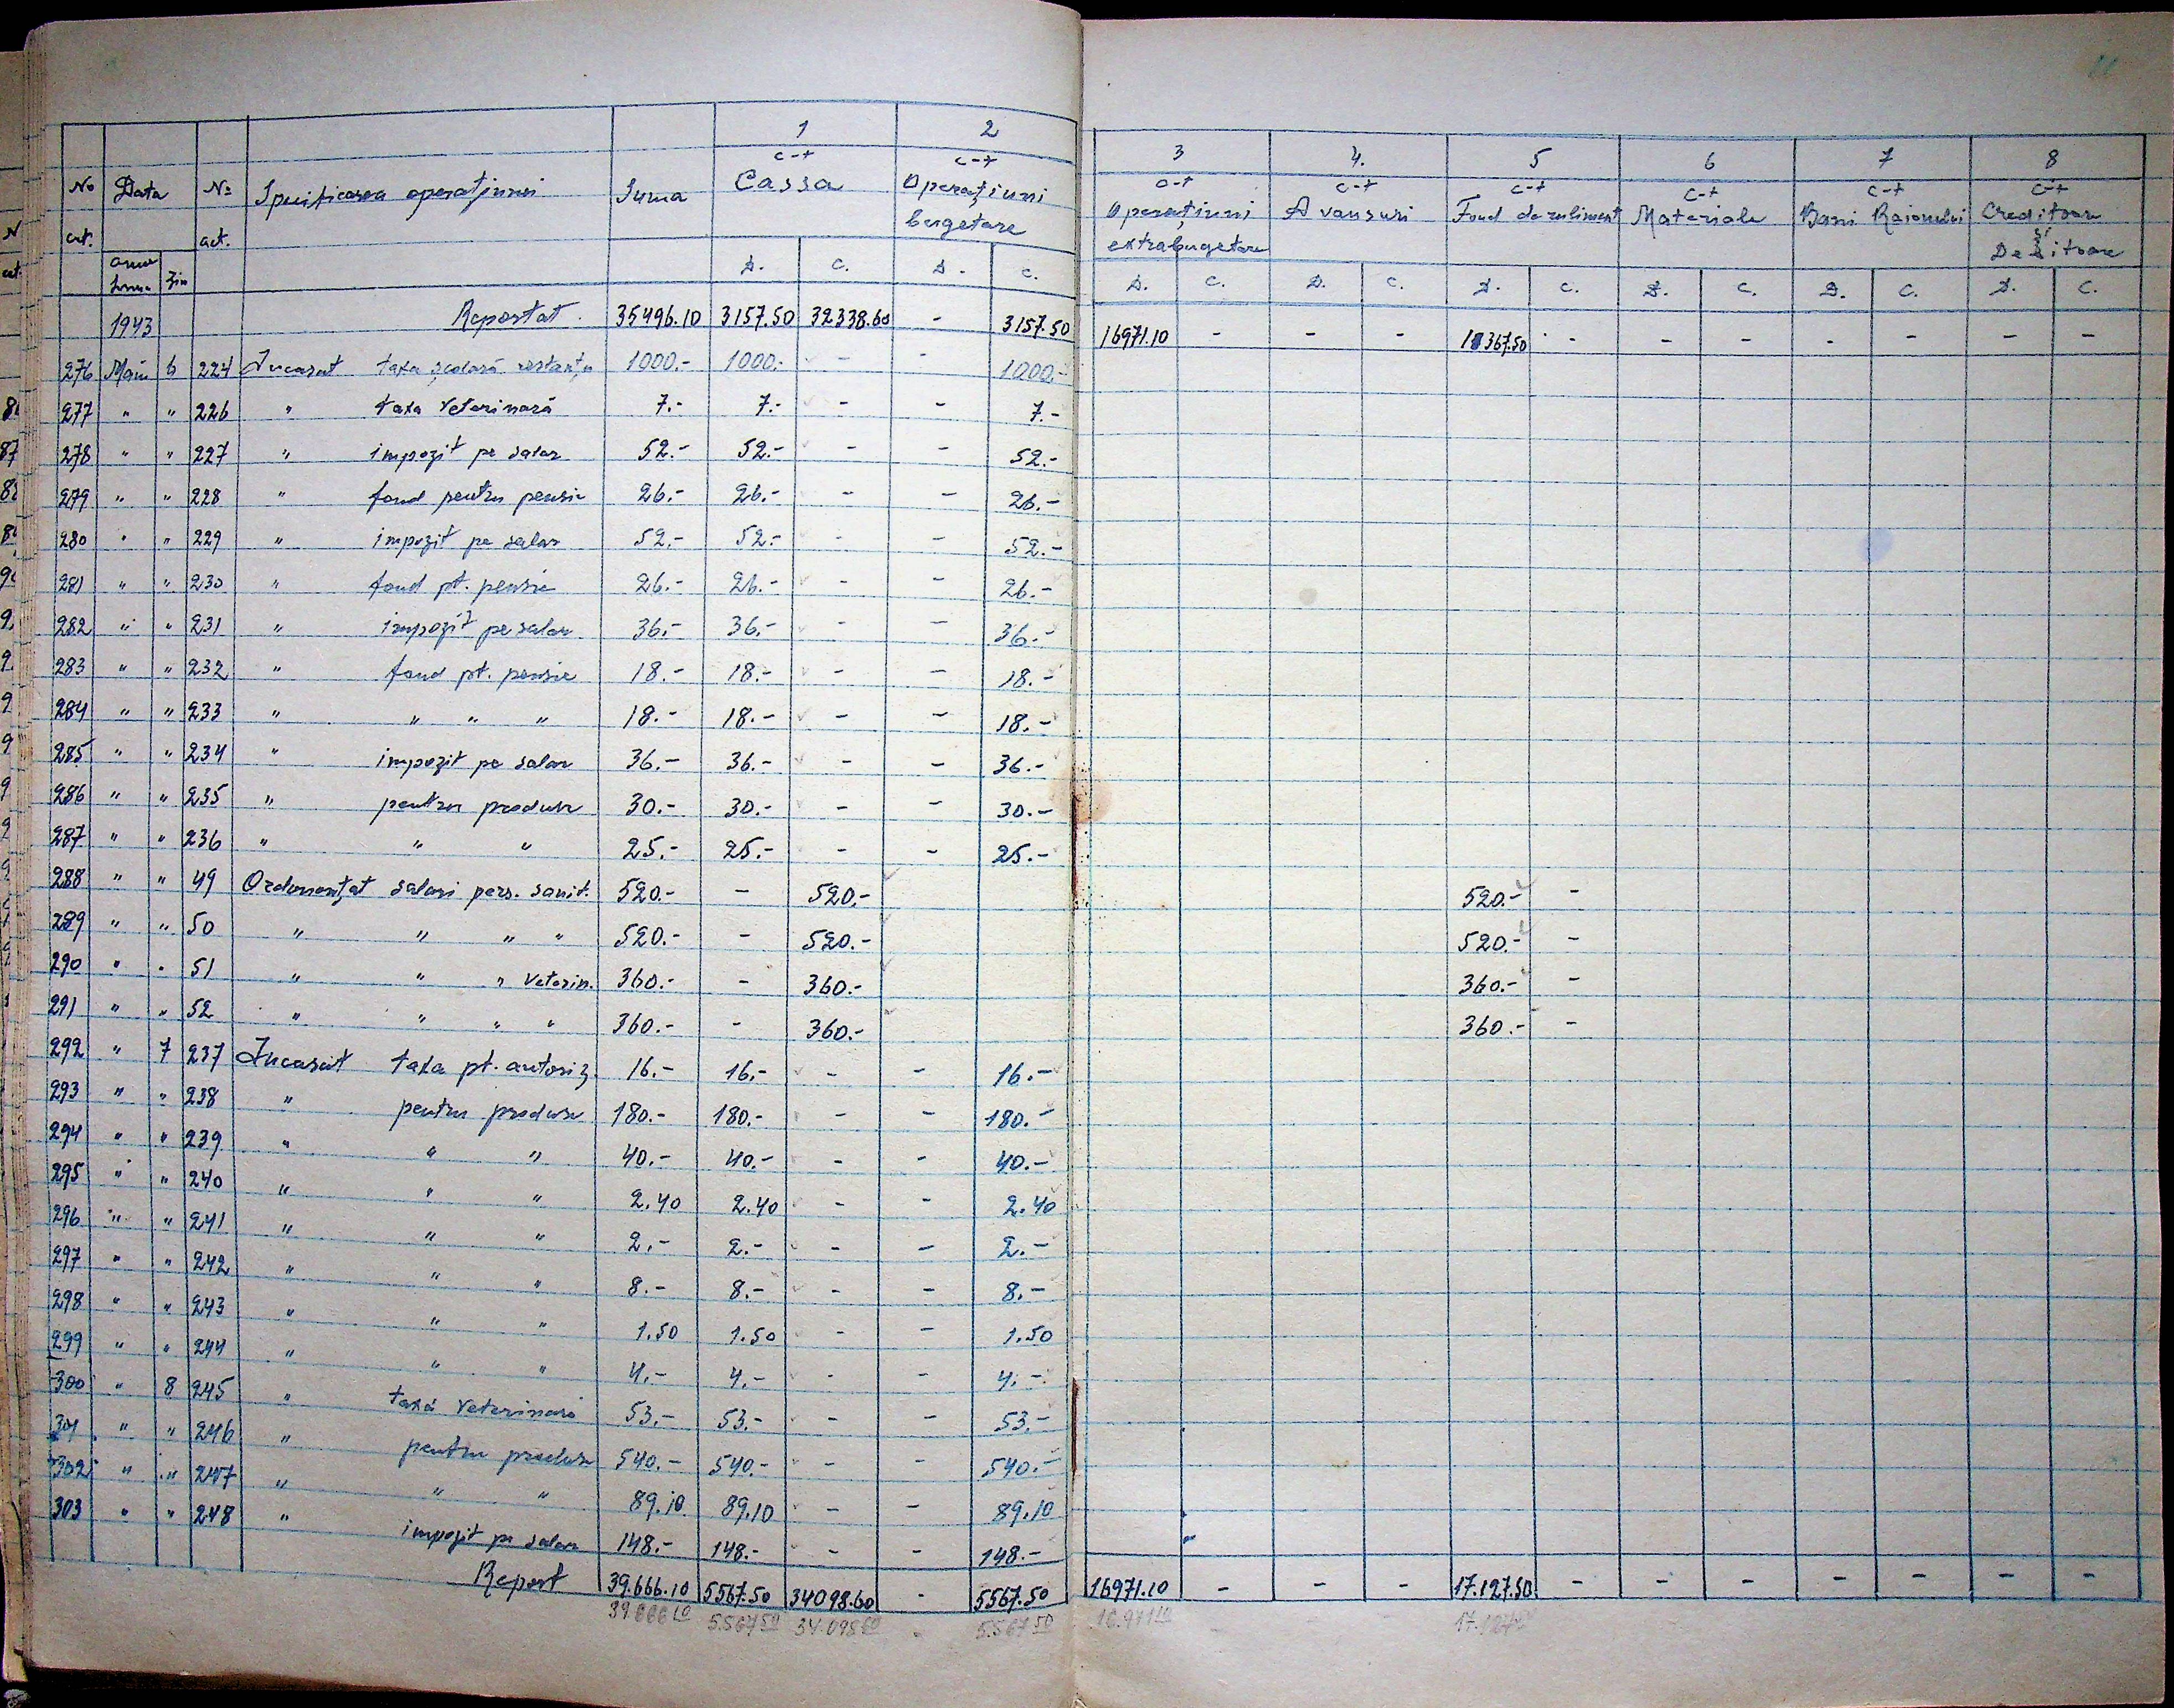 1 2 3 4. 5 6 7 8
c-t c-t c-t c-t c-t c-t c-t c-t
No Data No Specificarea operațiunii Suma Cassa Operațiuni Operațiuni Avansuri Fond de rulment Materiale Bani Raionului Creditoare
crt. act. bugetare extrabugetare și Debitoare
Anul Luna Ziua D. C. D. C. D. C. D. C. D. C. D. C. D. C. D. C.
1943 Reportat 35496.10 3157.50 32338.60 - 3157.50 16971.10 - - - 15367.50 - - - - - - -
276 Mai 6 224 Incasat taxa școlară restanța 1000.- 1000.- - - 1000.-
277 " " 226 " taxa veterinară 7.- 7.- - - 7.-
278 " " 227 " impozit pe salar 52.- 52.- - - 52.-
279 " " 228 " fond pentru pensie 26.- 26.- - - 26.-
280 " " 229 " impozit pe salar 52.- 52.- - - 52.-
281 " " 230 " fond pt. pensie 26.- 26.- - - 26.-
282 " " 231 " impozit pe salar 36.- 36.- - - 36.-
283 " " 232 " fond pt. pensie 18.- 18.- - - 18.-
284 " " 233 " " " " 18.- 18.- - - 18.-
285 " " 234 " impozit pe salar 36.- 36.- - - 36.-
286 " " 235 " pentru produse 30.- 30.- - - 30.-
287 " " 236 " " " 25.- 25.- - - 25.-
288 " " 49 Ordonanțat salarii pers. sanit. 520.- - 520.- 520.- -
289 " " 50 " " " " 520.- - 520.- 520.- -
290 " " 51 " " " Veterin. 360.- - 360.- 360.- -
291 " " 52 " " " " 360.- - 360.- 360.- -
292 " 7 237 Incasat taxa pt. autoriz. 16.- 16.- - - 16.-
293 " " 238 " pentru produse 180.- 180.- - - 180.-
294 " " 239 " " " 40.- 40.- - - 40.-
295 " " 240 " " " 2.40 2.40 - - 2.40
296 " " 241 " " " 2.- 2.- - - 2.-
297 " " 242 " " " 8.- 8.- - - 8.-
298 " " 243 " " " 1.50 1.50 - - 1.50
299 " " 244 " " " 4.- 4.- - - 4.-
300 " 8 245 " taxa veterinară 53.- 53.- - - 53.-
301 " " 246 " pentru produse 540.- 540.- - - 540.-
302 " " 247 " " " 89.10 89.10 - - 89.10
303 " " 248 " impozit pe salar 148.- 148.- - - 148.-
Report 39.666.10 5567.50 34098.60 - 5567.50 16971.10 - - - 17.127.50 - - - - - - -
39666 10 5.567 50 34.098 60 - 5.567 50 16.971 10 17.127